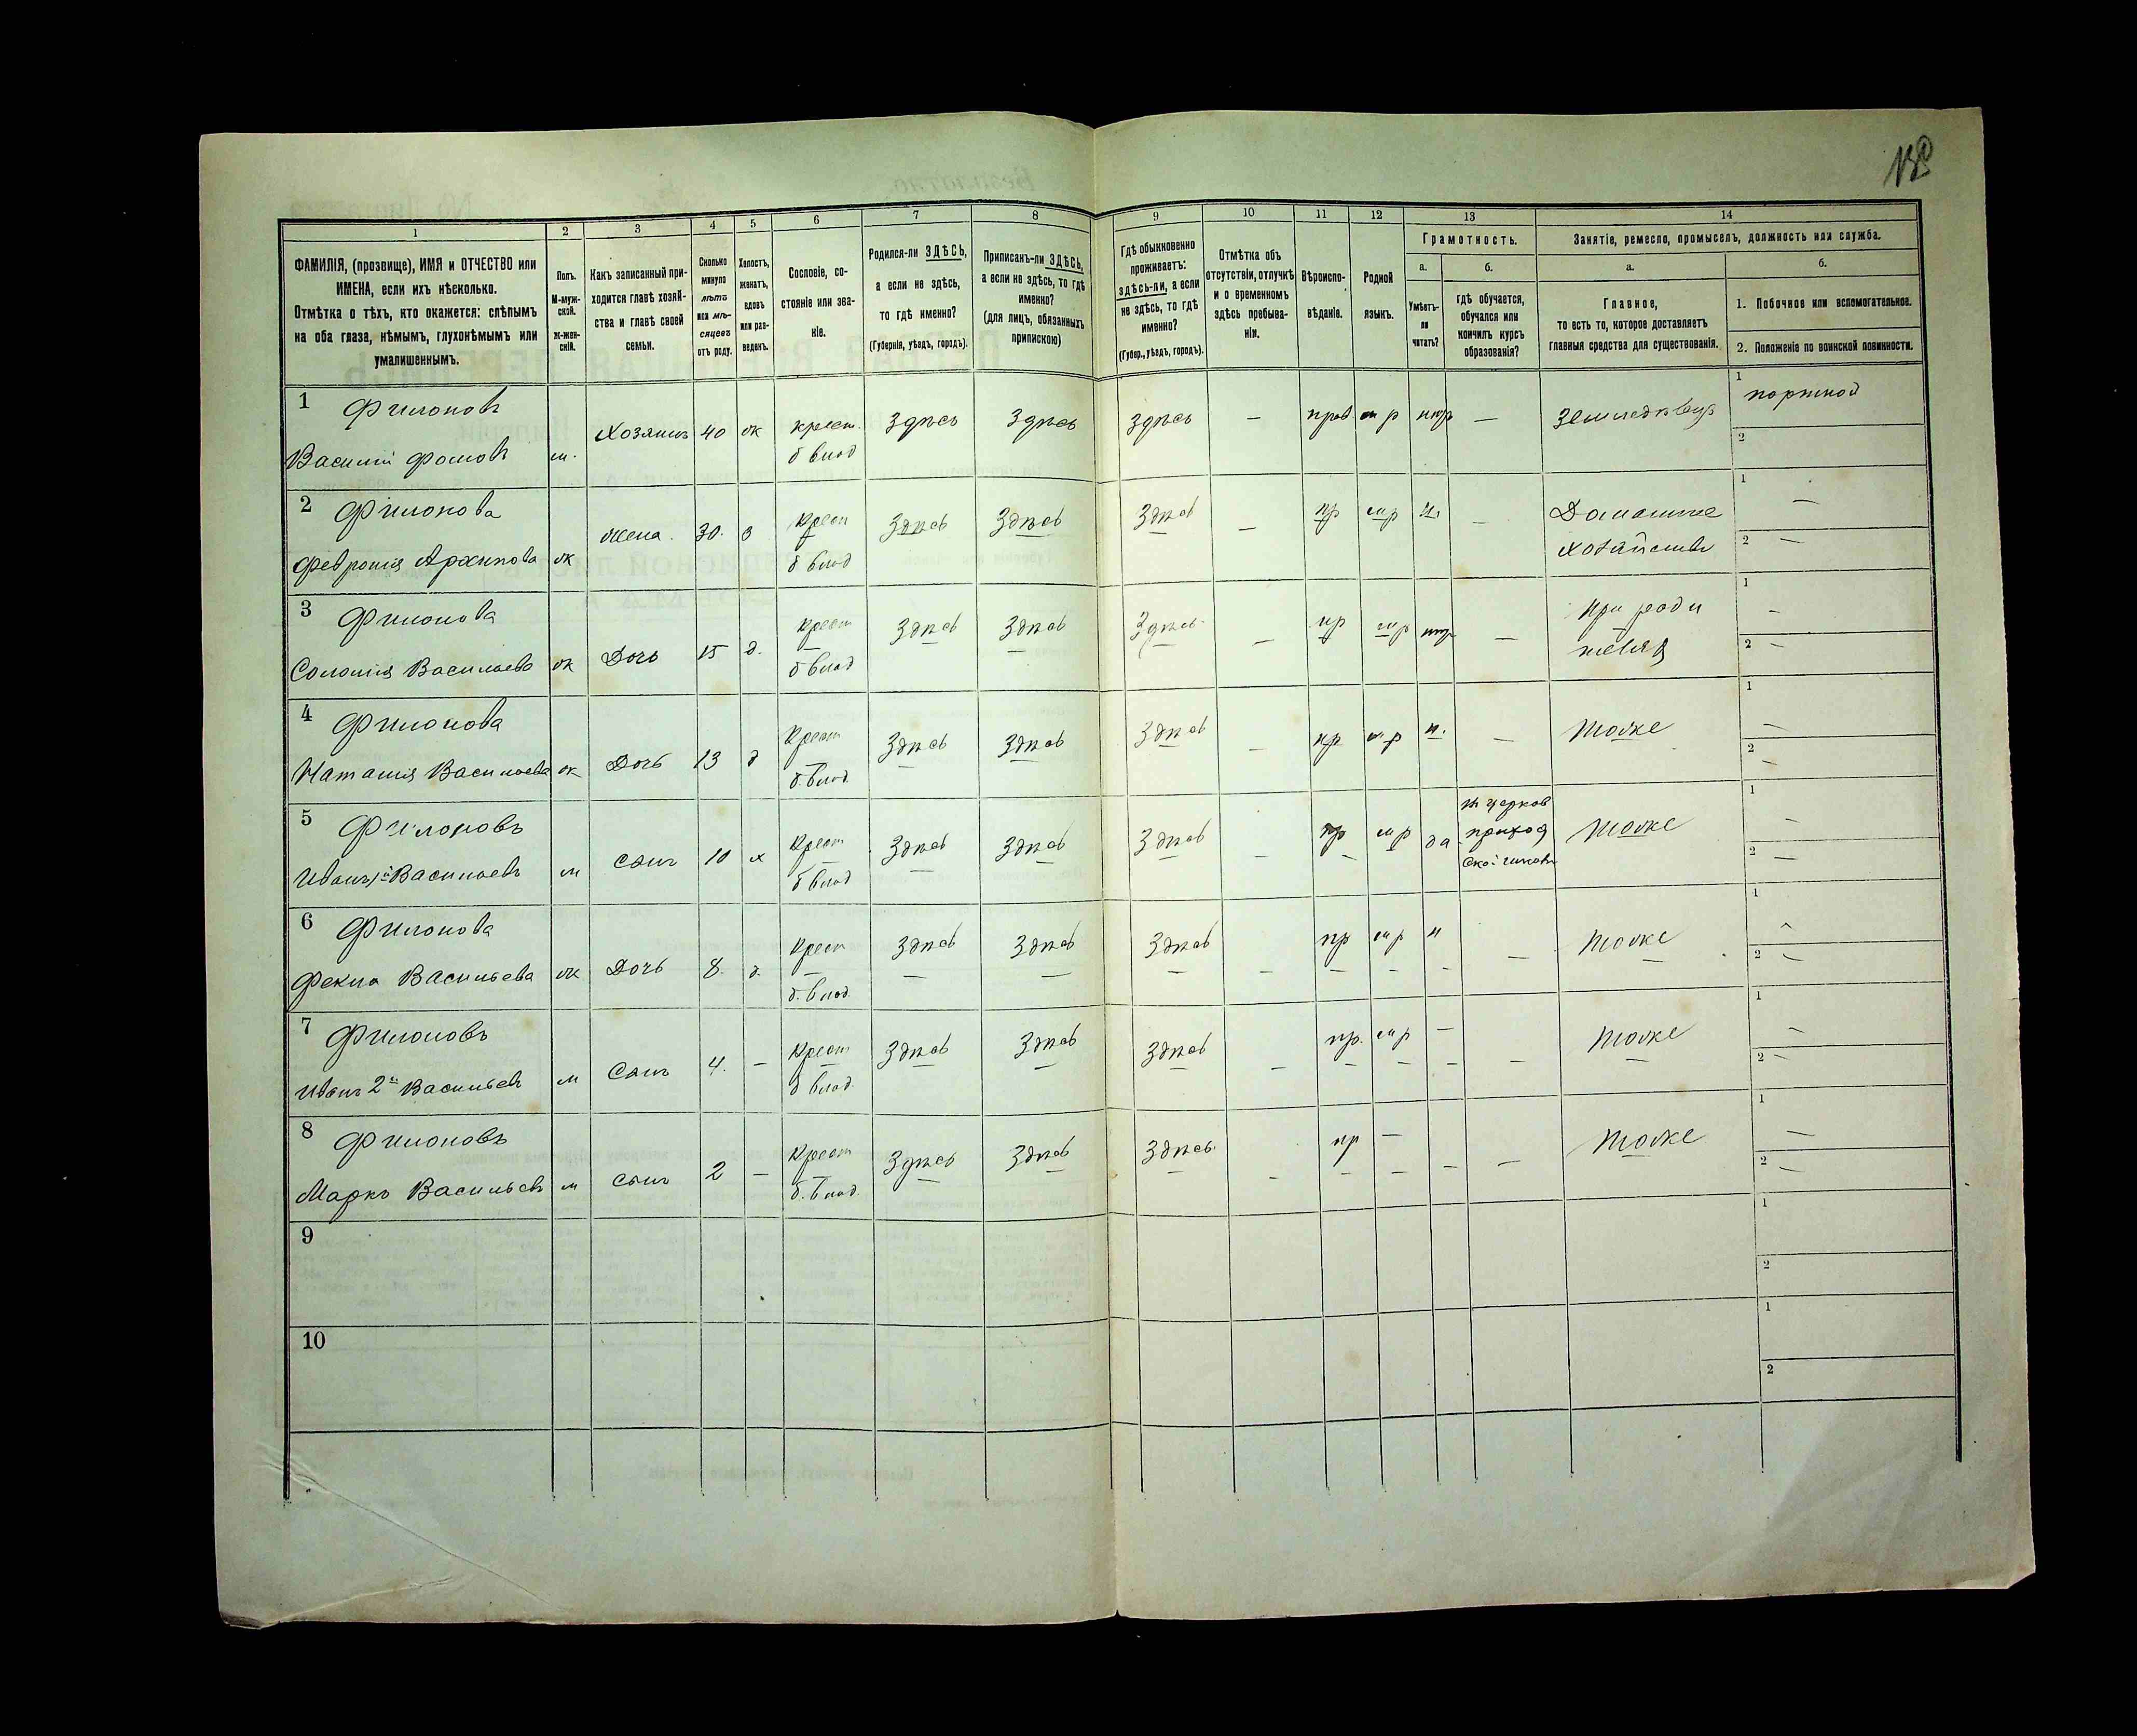 1 2 3 4 5 6 7 8 9 10 11 12 13 14
ФАМИЛІЯ, (прозвище), ИМЯ и ОТЧЕСТВО или
ИМЕНА, если ихъ нѣсколько.
Отмѣтка о тѣхъ, кто окажется: слѣпымъ
на оба глаза, нѣмымъ, глухонѣмымъ или
умалишеннымъ.
Полъ.
М-муж-
ской.
ж-жен-
скій.
Какъ записанный при-
ходится главѣ хозяй-
ства и главѣ своей
семьи.
Сколько
минуло
лѣтъ
или мѣ-
сяцевъ
отъ роду.
Холостъ,
женатъ,
вдовъ
или раз-
веденъ.
Сословіе, со-
стояніе или зва-
ніе.
Родился-ли ЗДѢСЬ,
а если не здѣсь,
то гдѣ именно?
(Губернія, уѣздъ, городъ).
Приписанъ-ли ЗДѢСЬ,
а если не здѣсь, то гдѣ
именно?
(для лицъ, обязанныхъ
припискою)
Гдѣ обыкновенно
проживаетъ:
здѣсь-ли, а если
не здѣсь, то гдѣ
именно?
(Губер., уѣздъ, городъ).
Отмѣтка объ
отсутствіи, отлучкѣ
и о временномъ
здѣсь пребыва-
ніи.
Вѣроиспо-
вѣданіе.
Родной
языкъ.
Грамотность.
а.
Умѣетъ-
ли
читать?
б.
гдѣ обучается,
обучался или
кончилъ курсъ
образованія?
Занятіе, ремесло, промыселъ, должность или служба.
а.
Главное,
то есть то, которое доставляетъ
главныя средства для существованія.
б.
1. Побочное или вспомогательное.
2. Положеніе по воинской повинности.
1 Филоновъ
Василій Фомовъ м. Хозяинъ 40 ж крест. Здѣсь Здѣсь Здѣсь — прав м р нтр — Земледѣлецъ 1 портной
б влад 2
2 Филонова
Февронія Архипова ж жена. 30. з Крест Здѣсь Здѣсь Здѣсь — пр мр н. — Домашнее 1 —
б влад Хозяйство 2 —
3 Филонова
Соломія Васильева ж Дочь 15 д. Крест Здѣсь Здѣсь Здѣсь — пр мр нтр — При роди 1 —
б влад теляхъ 2 —
4 Филонова
Наталія Васильева ж Дочь 13 д Крест Здѣсь Здѣсь Здѣсь — пр мр н. — тоже 1 —
б. влад. 2 —
5 Филоновъ
Иванъ 1й Васильевъ м Сынъ 10 х Крест Здѣсь Здѣсь Здѣсь — пр мр да церков приход тоже 1 —
б влад 2 —
6 Филонова
Фекла Васильева ж Дочь 8. д. Крест Здѣсь Здѣсь Здѣсь — пр мр н — тоже 1 —
б. влад. 2 —
7 Филоновъ
Иванъ 2й Васильевъ м Сынъ 4. — Крест Здѣсь Здѣсь Здѣсь — пр. мр — — тоже 1 —
б влад. 2 —
8 Филоновъ
Марко Васильевъ м сынъ 2 — Крест Здѣсь Здѣсь Здѣсь. — пр — — — тоже 1 —
б. влад. 2 —
9 1
2
10 1
2